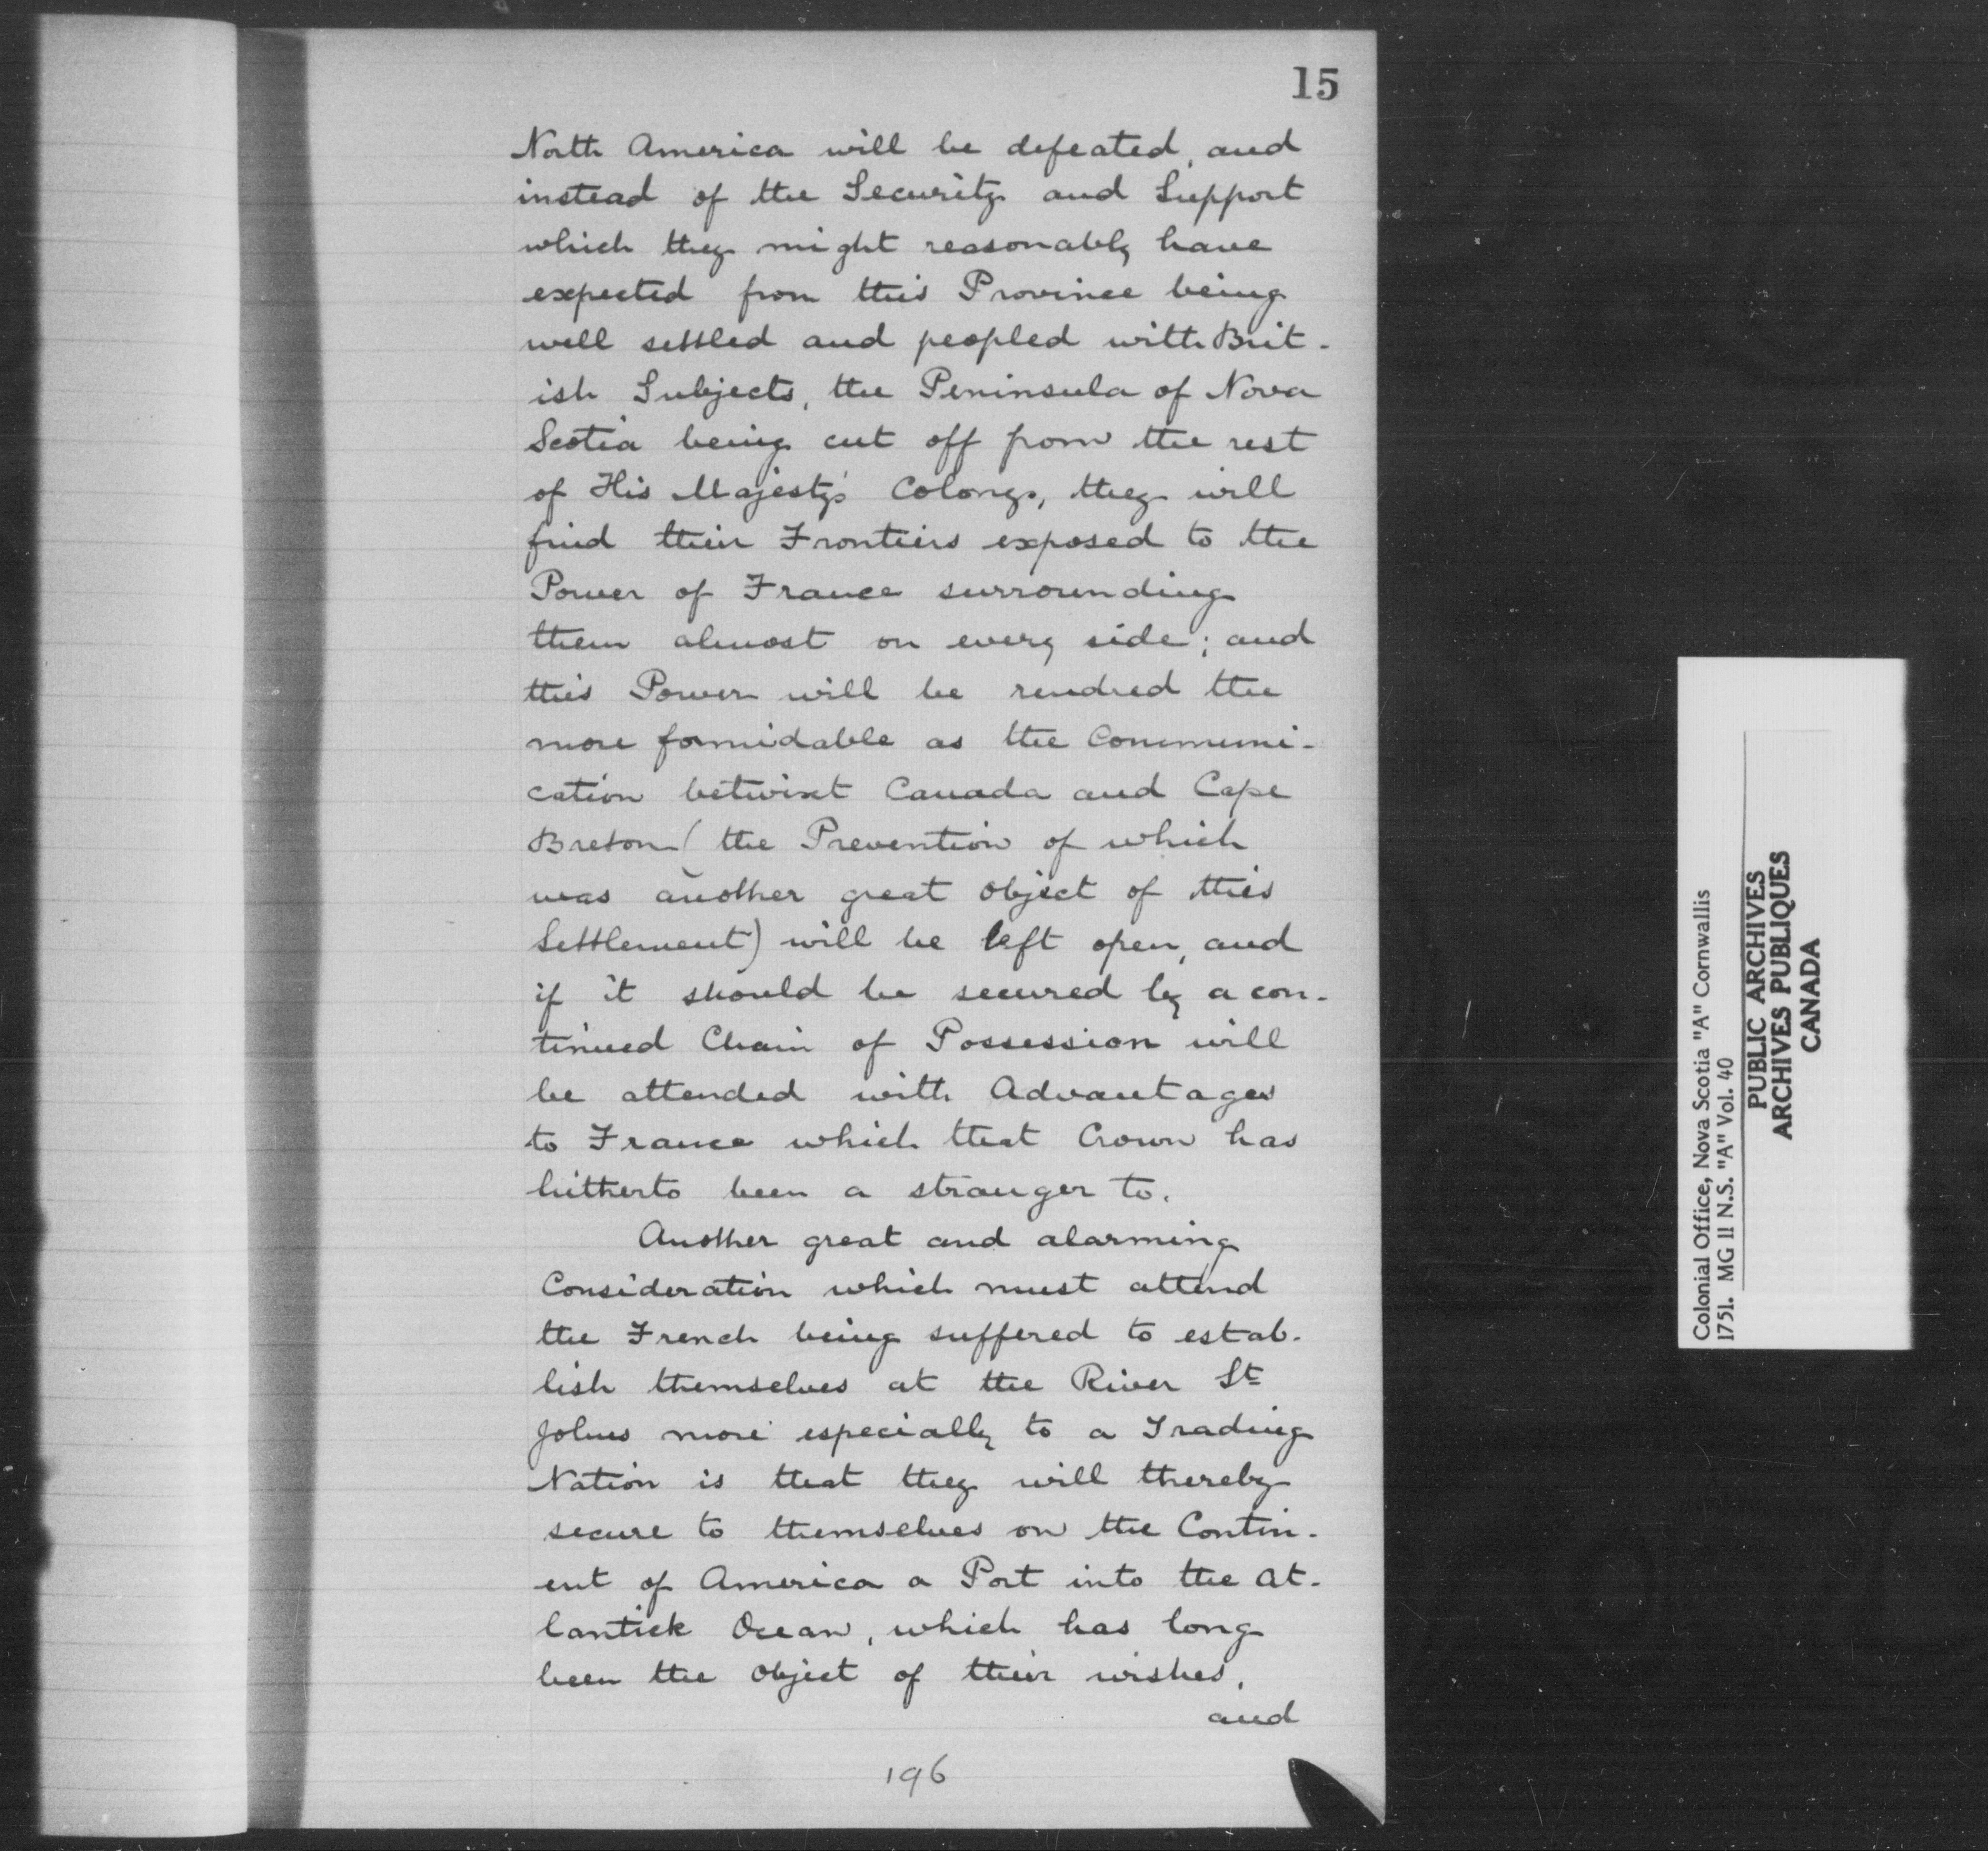 15
North America will be defeated, and
instead of the Security and Support
which they might reasonably have
expected from this Province being
well settled and peopled with Brit-
ish Subjects, the Peninsula of Nova
Scotia being cut off from the rest
of His Majesty's Colony, they will
find their Frontiers exposed to the
Power of France surrounding
them almost on every side; and
this Power will be rendred the
more formidable as the Communi-
cation betwixt Canada and Cape
Breton (the Prevention of which
was another great object of this
Settlement) will be left open, and
if it should be secured by a con-
tinued Chain of Possession will
be attended with Advantages
to France which that Crown has
hitherto been a stranger to.
Another great and alarming
Consideration which must attend
the French being suffered to estab-
lish themselves at the River St
Johns more especially to a Trading
Nation is that they will thereby
secure to themselves on the Contin-
ent of America a Port into the At-
lantick Ocean, which has long
been the object of their wishes,
and
196
Colonial Office, Nova Scotia "A" Cornwallis
1751. MG 11 N.S. "A" Vol. 40
PUBLIC ARCHIVES
ARCHIVES PUBLIQUES
CANADA